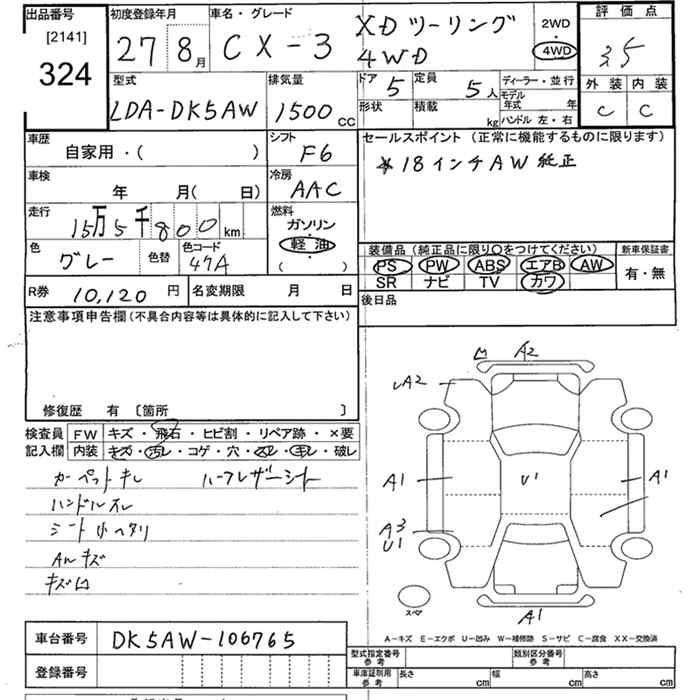 出品番号 [2141] 324
初度登録年月 27 8月
車名・グレード CX-3 XDツーリング 4WD
2WD 4WD
評価点 3.5
外装 C 内装 C
型式 LDA-DK5AW
排気量 1500 cc
ドア 5 定員 5人
形状 積載 kg
ディーラー・並行
モデル年式 年
ハンドル 左・右
車歴 自家用・( )
シフト F6
セールスポイント (正常に機能するものに限ります)
＊18インチAW 純正
車検 年 月( 日)
冷房 AAC
走行 15万5千800 km
燃料 ガソリン・軽油 ( )
色 グレー 色替 色コード 47A
装備品 (純正品に限り○をつけてください)
新車保証書 有・無
PS PW ABS エアB AW
SR ナビ TV カワ
R券 10,120 円 名変期限 月 日
後日品
注意事項申告欄 (不具合内容等は具体的に記入して下さい)
修復歴 有 〔箇所 〕
検査員記入欄
FW キズ・飛石・ヒビ割・リペア跡・×要
内装 キズ・汚レ・コゲ・穴・スレ・キレ・破レ
カーペットキレ ハーフレザーシート
ハンドルスレ
AWキズ
A2
A2
A1 U1 A1
A3
U1
スペア
A1
A－キズ E－エクボ U－凹み W－補修跡 S－サビ C－腐食 XX－交換済
車台番号 DK5AW-106765
登録番号
型式指定番号 参考 類別区分番号 参考
車庫証明用 参考 長さ cm 幅 cm 高さ cm